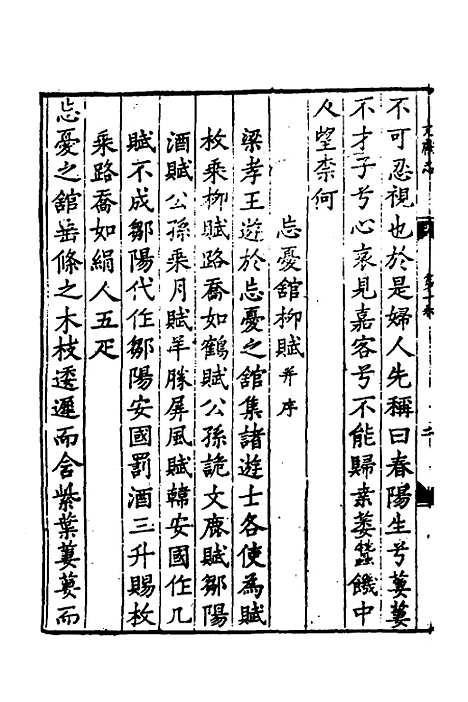 不可忍視也於是婦人先稱曰春陽生兮萋萋
不才子兮心哀見嘉客兮不能歸桒萎蠶饑中
人望柰何
忘憂舘柳賦并序
梁孝王遊於忘憂之舘集諸遊士各使為賦
枚乘柳賦路喬如鶴賦公孫詭文鹿賦鄒陽
酒賦公孫乘月賦羊勝屏風賦韓安國作几
賦不成鄒陽代作鄒陽安國罰酒三升賜枚
乘路喬如絹人五疋
忘憂之舘垂條之木枝逶遲而含紫葉萋萋而